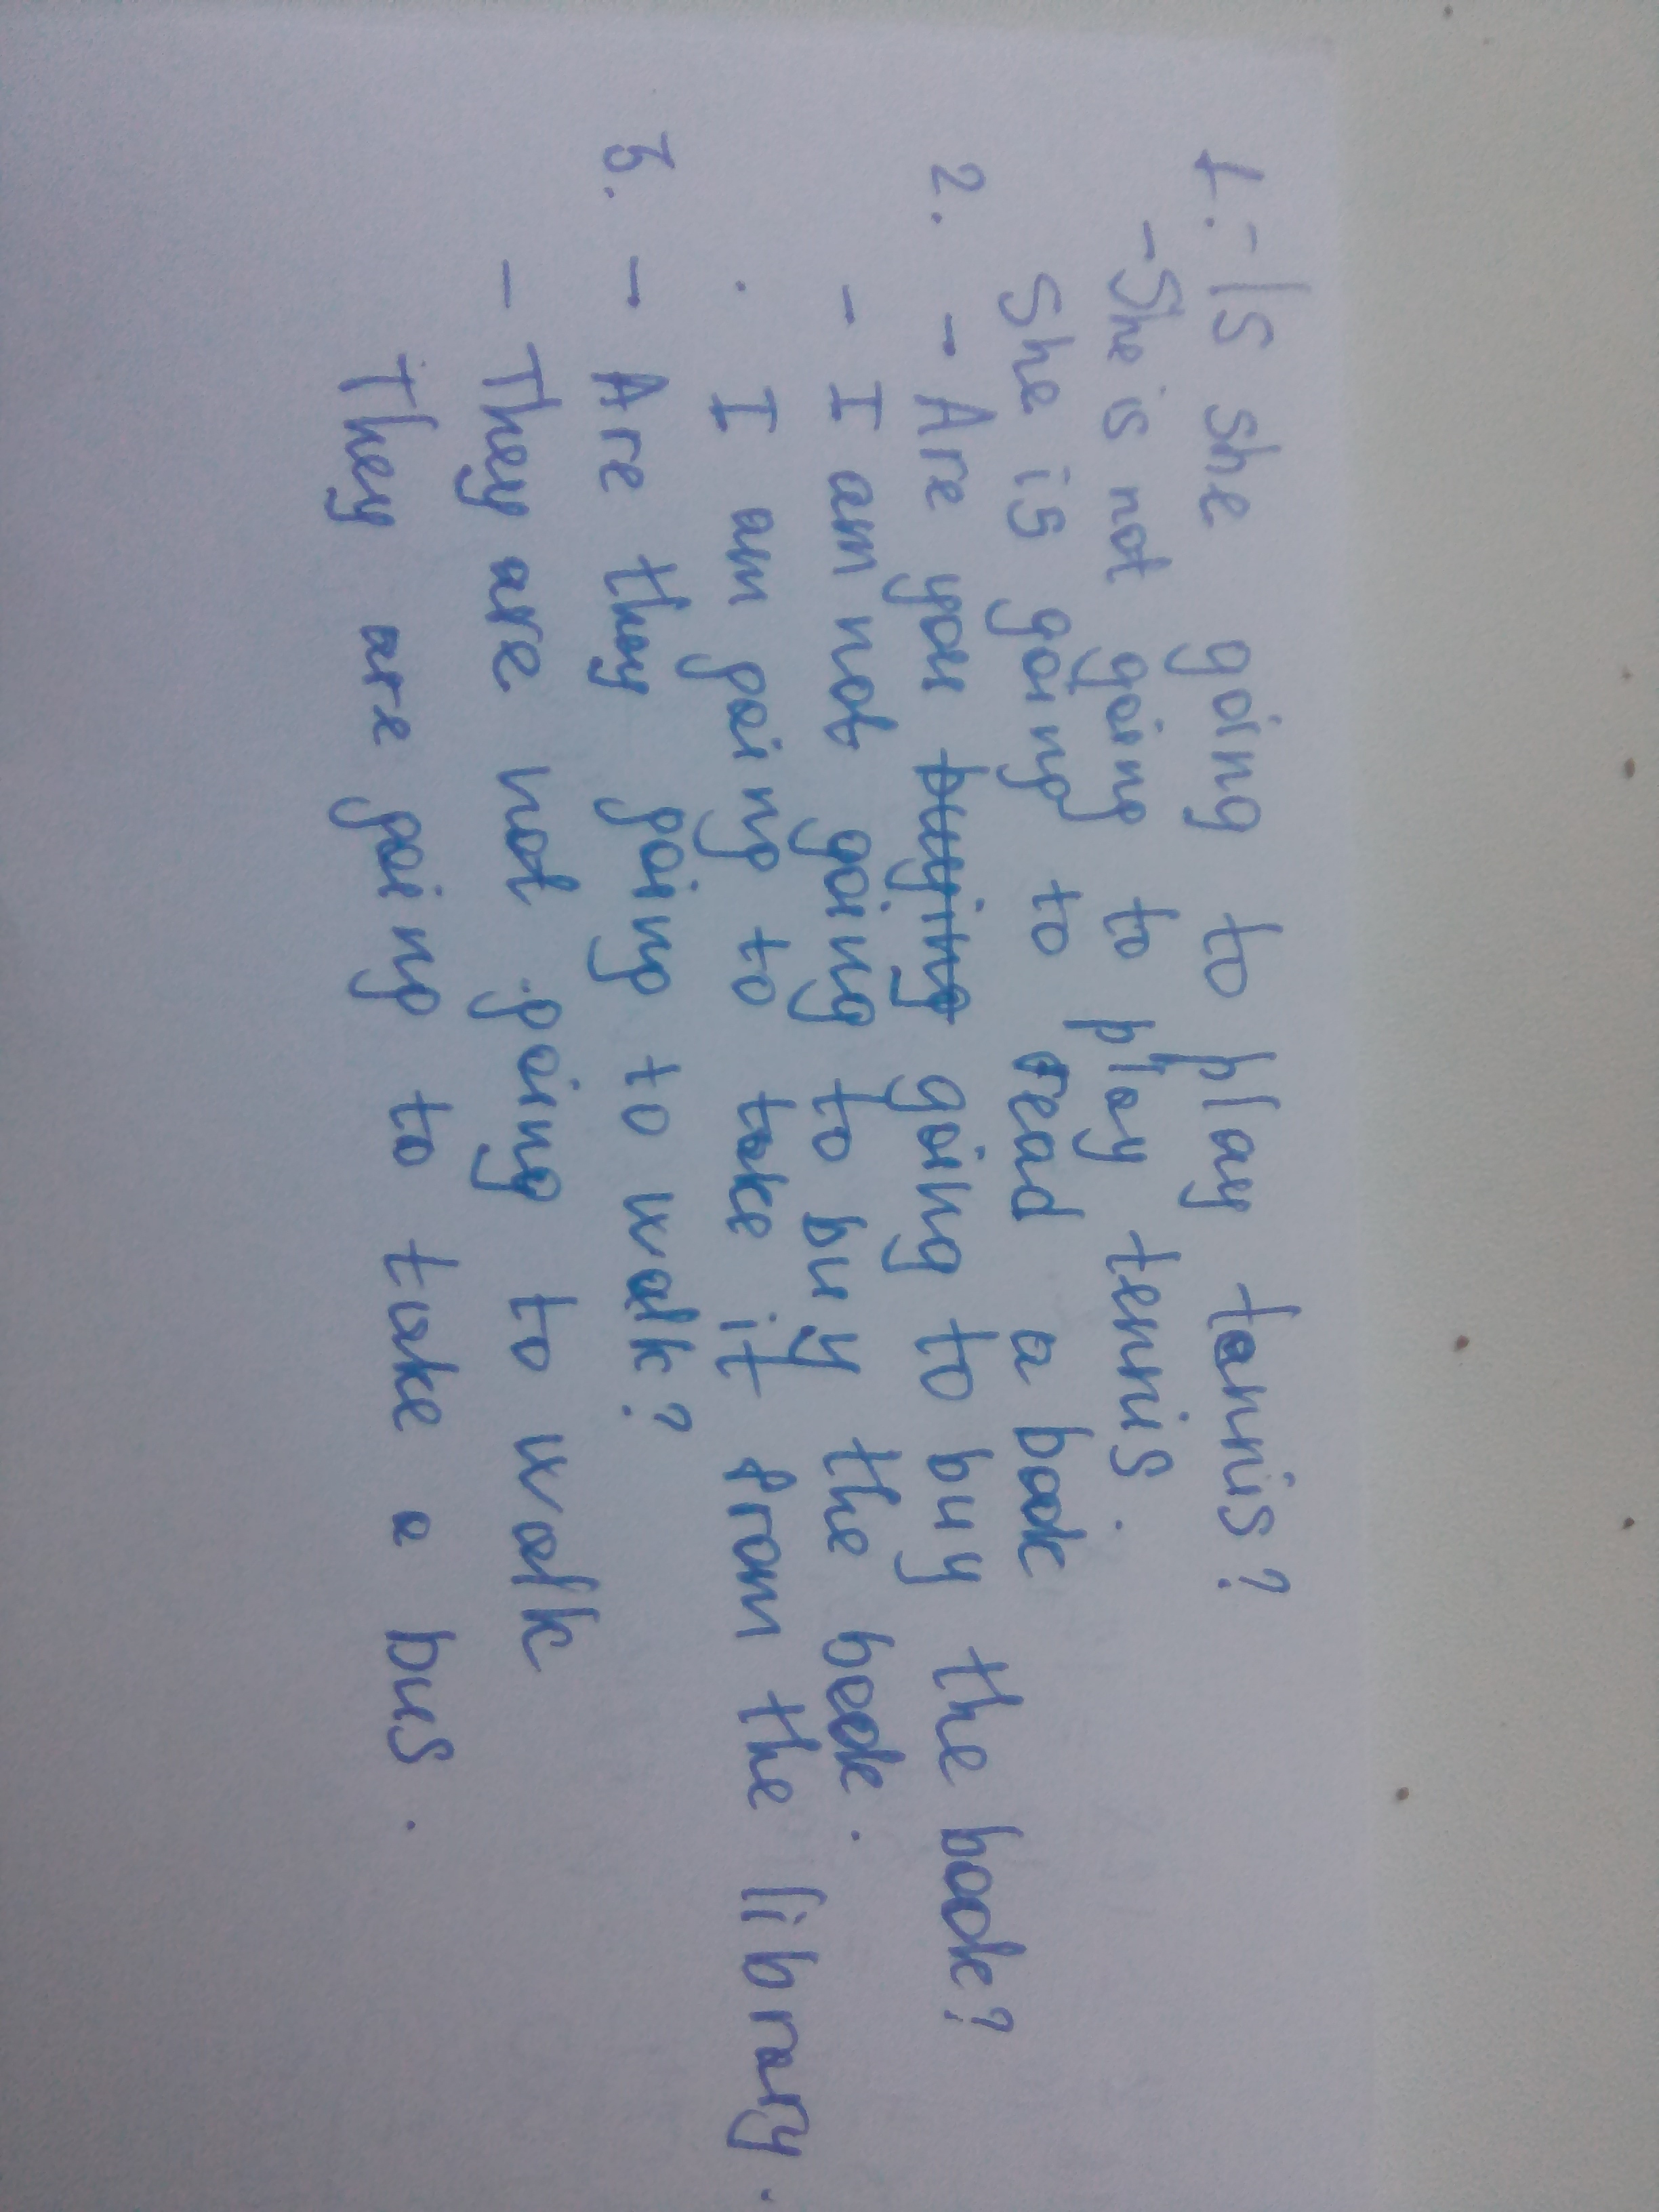 1. - Is she going to play tennis?
- She is not going to play tennis.
She is going to read a book
2. - Are you buying going to buy the book?
- I am not going to buy the book.
. I am going to take it from the library.
3. - Are they going to walk?
- They are not going to walk
They are going to take a bus.